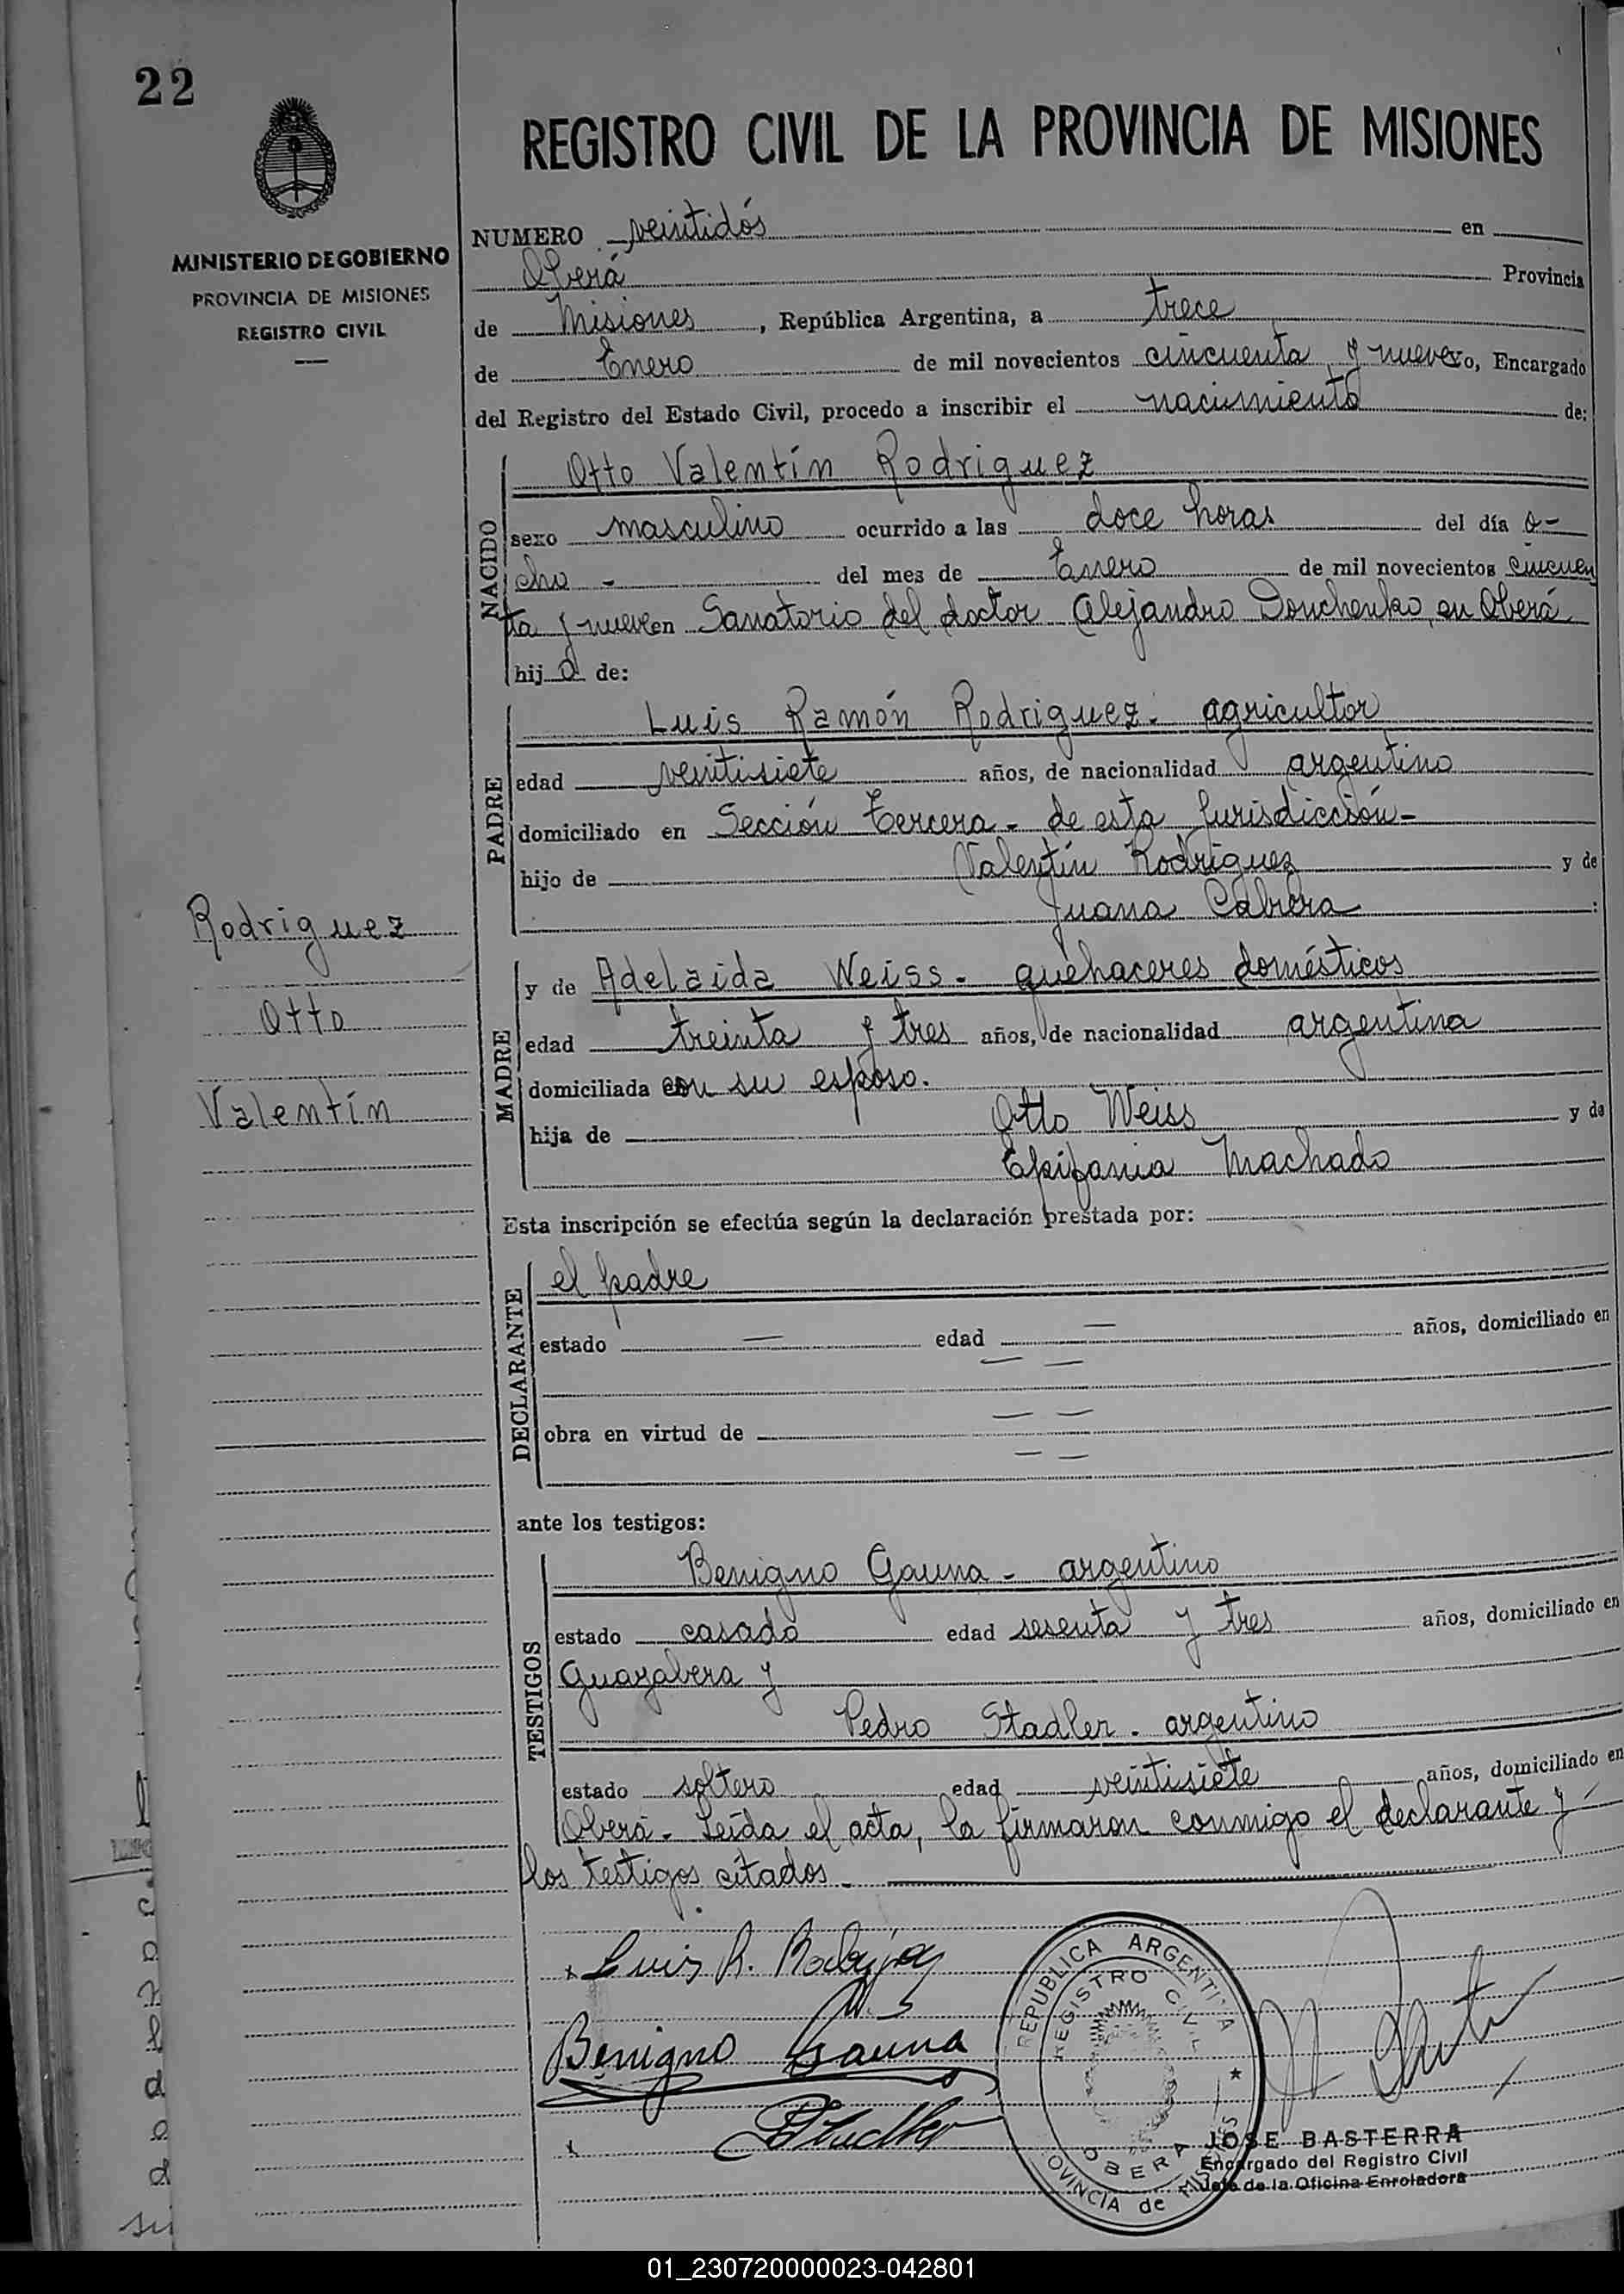 22
REGISTRO CIVIL DE LA PROVINCIA DE MISIONES
MINISTERIO DE GOBIERNO
PROVINCIA DE MISIONES
REGISTRO CIVIL
NUMERO veintidós en
Oberá Provincia
de Misiones, República Argentina, a trece
de Enero de mil novecientos cincuenta y nueve yo, Encargado
del Registro del Estado Civil, procedo a inscribir el nacimiento de:
NACIDO
Otto Valentín Rodriguez
sexo masculino ocurrido a las doce horas del día o-
cho - del mes de Enero de mil novecientos cincuen
ta y nueve en Sanatorio del doctor Alejandro Donchenko, en Oberá
hijo de:
PADRE
Luis Ramón Rodriguez. agricultor
edad veintisiete años, de nacionalidad argentino
domiciliado en Sección Tercera - de esta Jurisdicción -
hijo de Valentín Rodriguez y de
Juana Cabrera :
Rodriguez
Otto
Valentín
MADRE
y de Adelaida Weiss - quehaceres domésticos
edad treinta y tres años, de nacionalidad argentina
domiciliada con su esposo.
hija de Otto Weiss y de
Epifania Machado
Esta inscripción se efectúa según la declaración prestada por:
DECLARANTE
el padre
estado — edad — años, domiciliado en
— —
obra en virtud de — —
— —
ante los testigos:
TESTIGOS
Benigno Gauna - argentino
estado casado edad sesenta y tres años, domiciliado en
Guayabera y
Pedro Stadler - argentino
estado soltero edad veintisiete años, domiciliado en
Oberá - Leída el acta, la firmaron conmigo el declarante y
los testigos citados -
x Luis R. Rodriguez
Benigno Gauna
x PStadler
REPUBLICA ARGENTINA
REGISTRO CIVIL
OBERA
PROVINCIA de MISIONES
JOSE BASTERRA
Encargado del Registro Civil
Jefe de la Oficina Enroladora
01_230720000023-042801